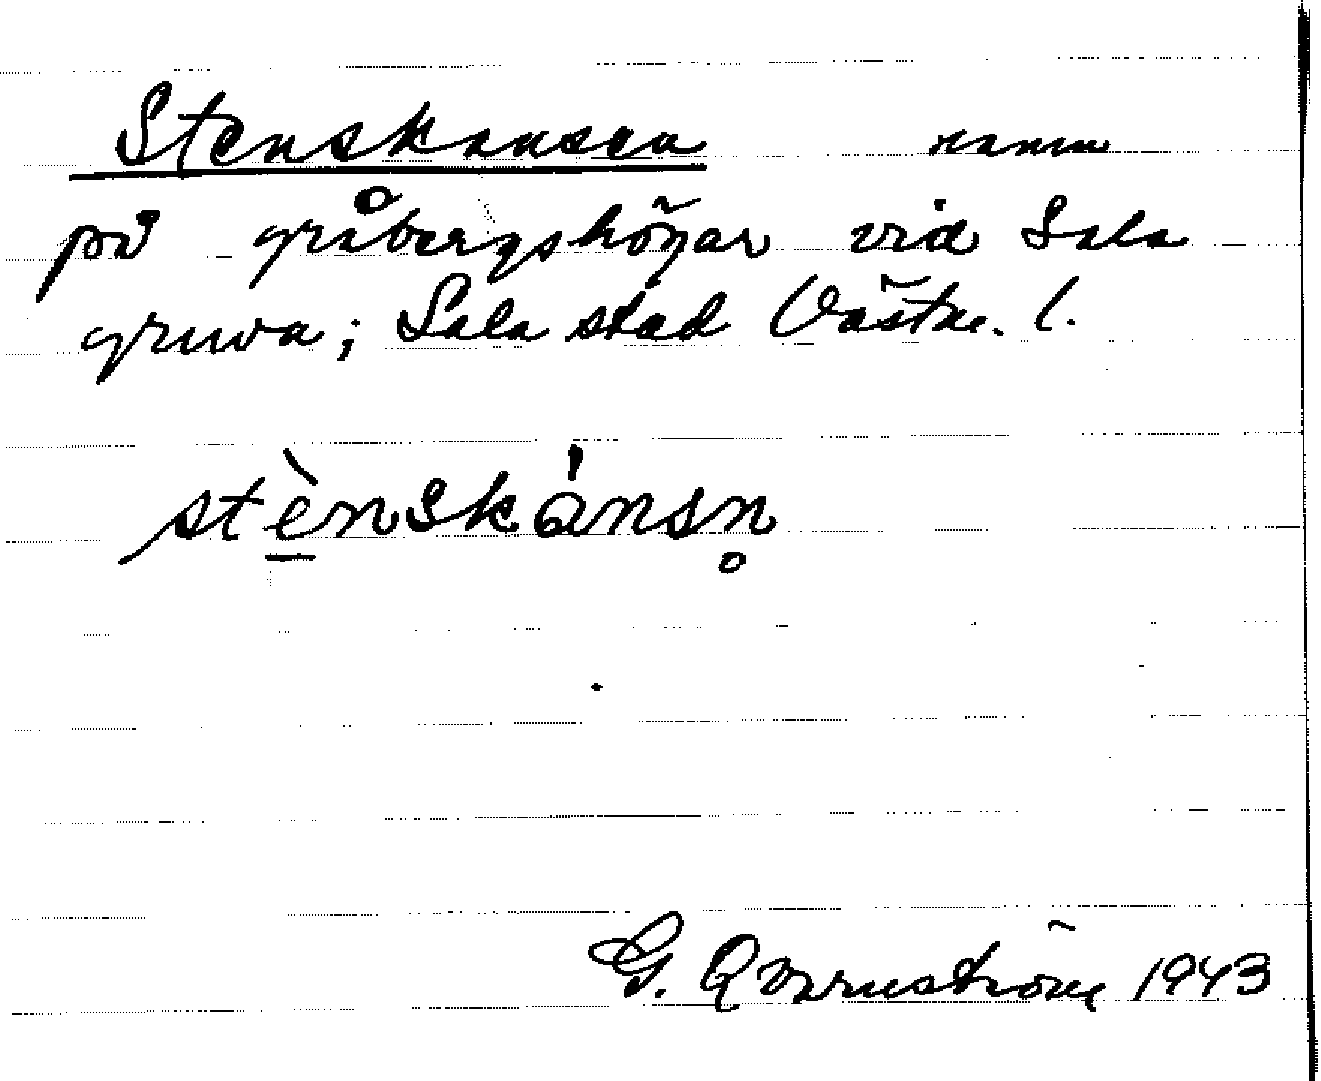 Stenskansen namn
på gråbergshögar vid Sala
gruva; Sala stad Västm. l.
stènskánsn̥
G. Qvarnström 1943